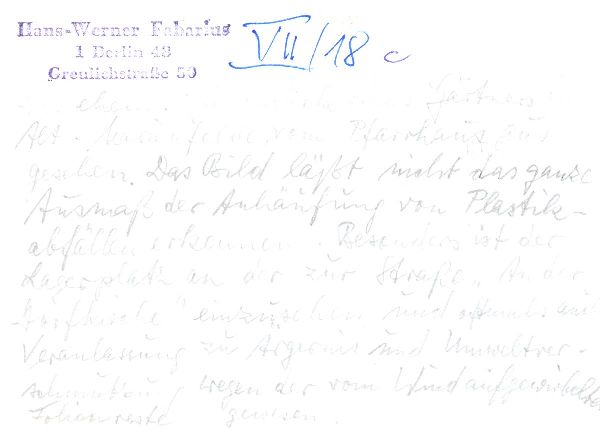 Hans-Werner Fabarius
1 Berlin 48
Greulichstraße 50
VII/18 c
ehem. Gärtners in
Alt-Marienfelde vom Pfarrhaus aus
gesehen. Das Bild läßt nicht das ganze
Ausmaß der Anhäufung von Plastik-
abfällen erkennen. Besonders ist der
Lagerplatz an der zur Straße „An der
Dorfkirche" einzusehen und oftmals
Veranlassung zu Ärgernis und Umweltver-
schmutzung wegen der vom Wind aufgewirbelten
Folienreste gewesen.